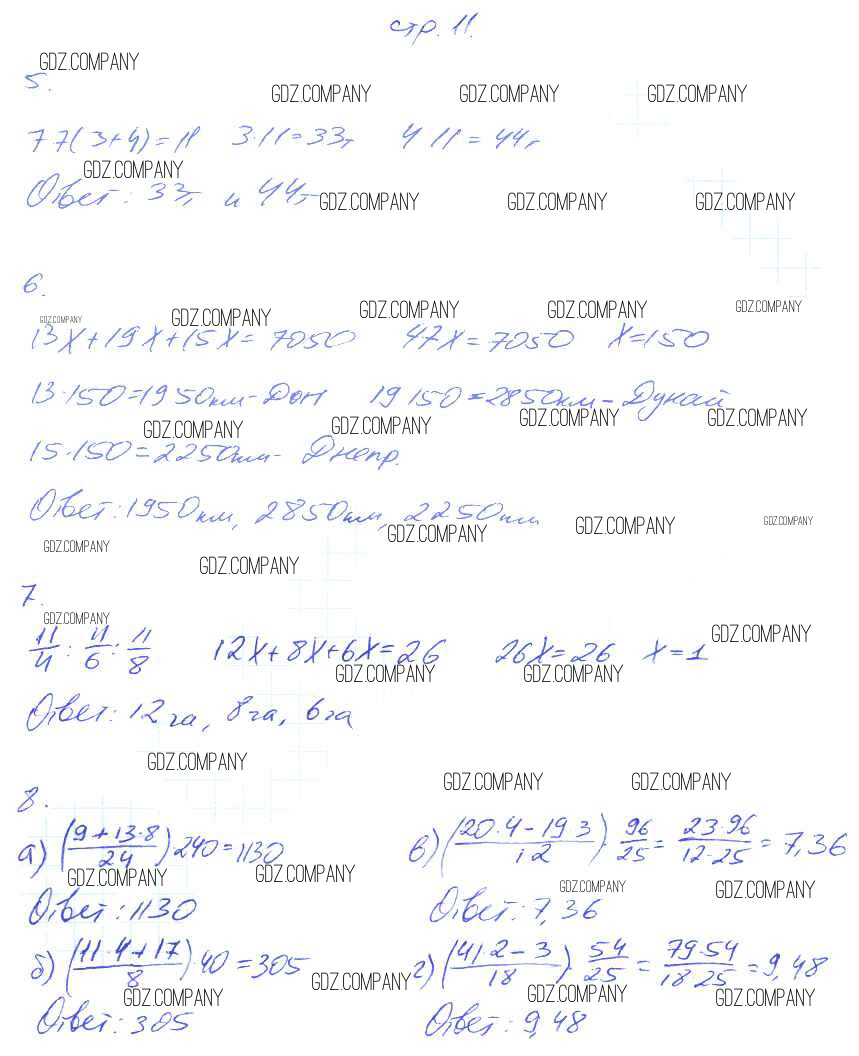 стр. 11.
GDZ.COMPANY
5.
GDZ.COMPANY GDZ.COMPANY GDZ.COMPANY
77(3+4)=11 3·11=33г 4 11=44г
GDZ.COMPANY
Ответ: 33г и 44г
GDZ.COMPANY GDZ.COMPANY GDZ.COMPANY
6.
GDZ.COMPANY GDZ.COMPANY GDZ.COMPANY GDZ.COMPANY GDZ.COMPANY
13X+19X+15X=7050 47X=7050 X=150
13·150=1950км-Дон 19 150=2850км-Дунай
GDZ.COMPANY GDZ.COMPANY GDZ.COMPANY GDZ.COMPANY
15·150=2250км- Днепр.
Ответ: 1950км, 2850км, 2250км
GDZ.COMPANY GDZ.COMPANY GDZ.COMPANY
GDZ.COMPANY GDZ.COMPANY
7.
GDZ.COMPANY
11/4 : 11/6 : 11/8 12X+8X+6X=26 26X=26 X=1
GDZ.COMPANY
GDZ.COMPANY GDZ.COMPANY
Ответ: 12га, 8га, 6га
GDZ.COMPANY GDZ.COMPANY GDZ.COMPANY
8.
а) (9+13·8/24) 240=1130
GDZ.COMPANY GDZ.COMPANY
Ответ: 1130
б) (11·4+17/8) 40=305
GDZ.COMPANY GDZ.COMPANY
Ответ: 305
в) (20·4-19 3/12) 96/25 = 23·96/12·25 = 7,36
GDZ.COMPANY GDZ.COMPANY
Ответ: 7,36
г) (41·2-3/18) 54/25 = 79·54/18 25 = 9,48
GDZ.COMPANY GDZ.COMPANY
Ответ: 9,48